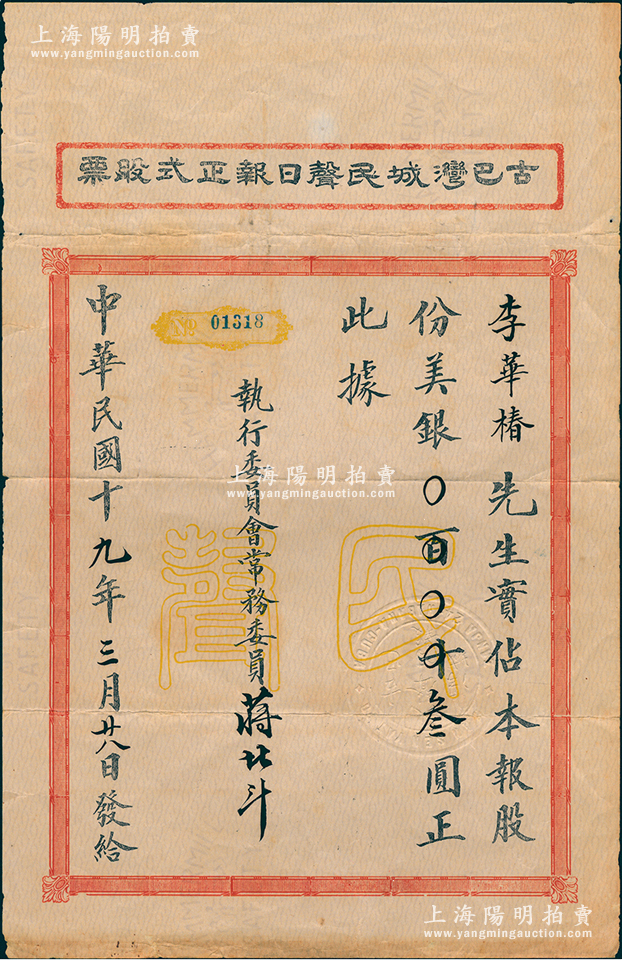 上海陽明拍賣
www.yangmingauction.com
古巴灣城民聲日報正式股票
李華椿先生實佔本報股
份美銀〇百〇十叁圓正
此據
No 01318
執行委員會常務委員蔣北斗
中華民國十九年三月廿八日發給
民聲
上海陽明拍賣
www.yangmingauction.com
上海陽明拍賣
www.yangmingauction.com